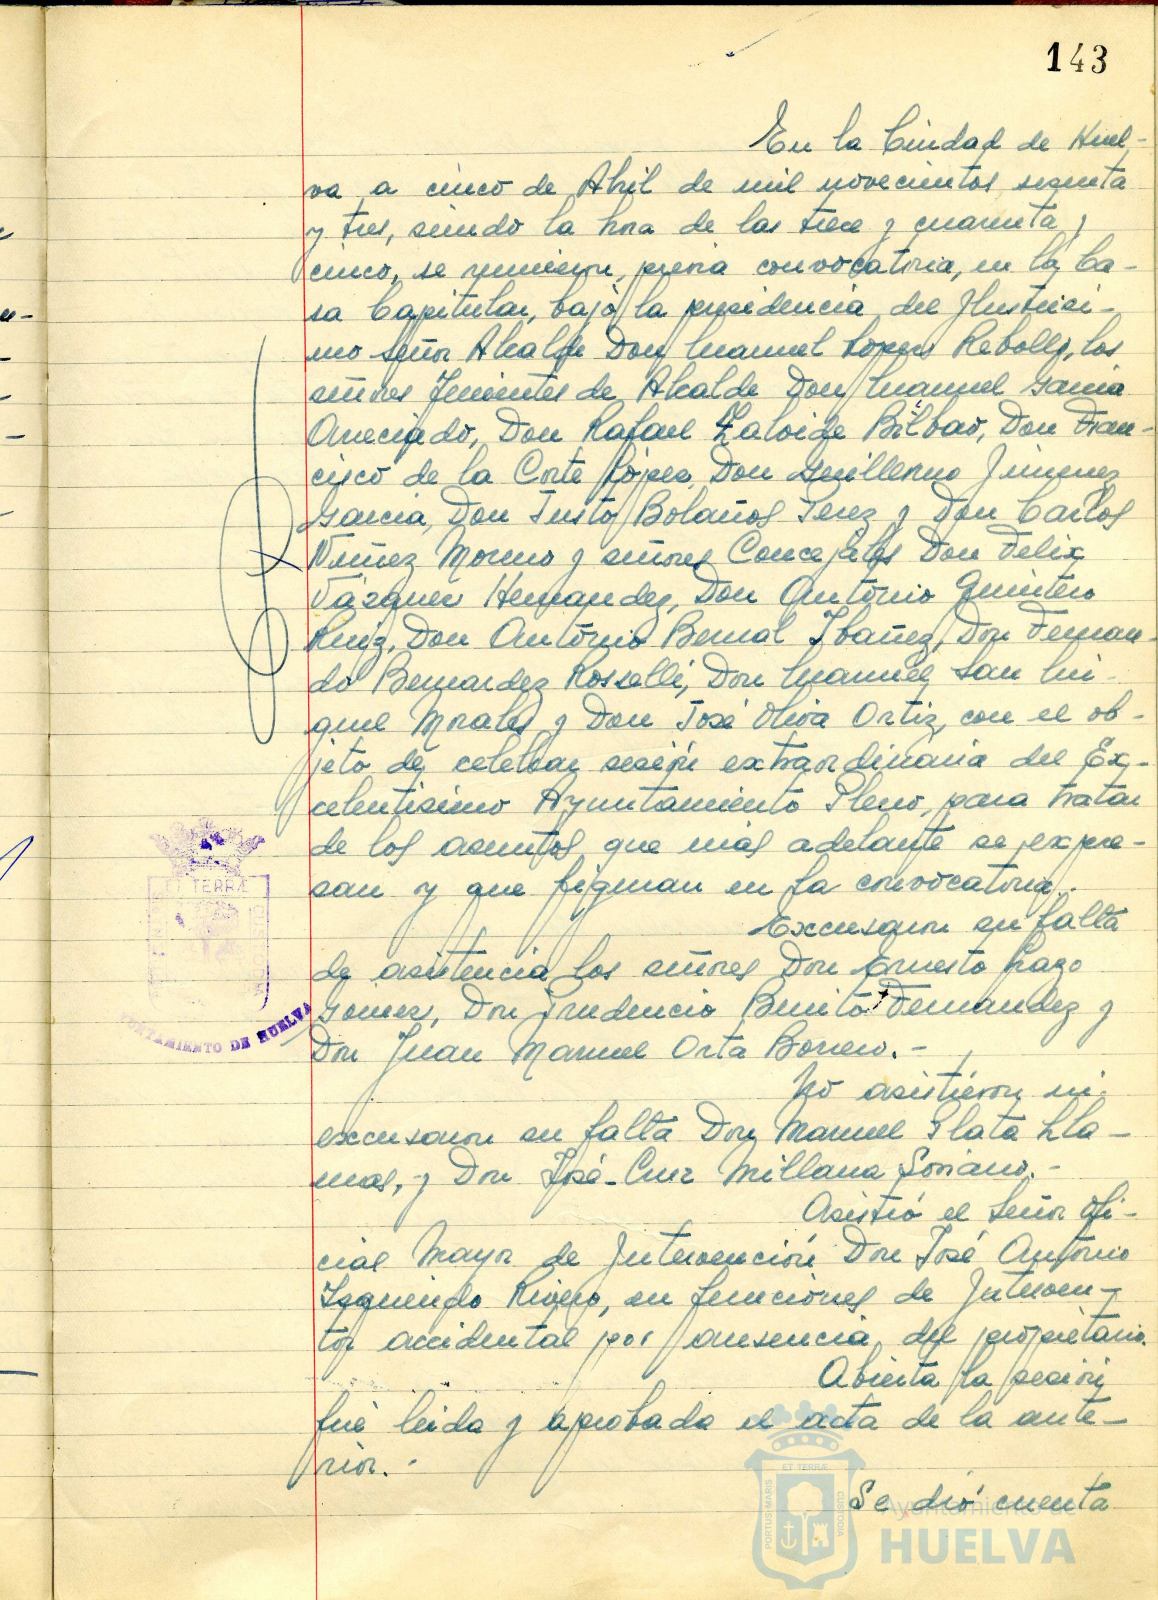 143
En la Ciudad de Huel-
va a cinco de Abril de mil novecientos sesenta
y tres, siendo la hora de las trece y cuarenta y
cinco, se reunieron, previa convocatoria, en la Ca-
sa Capitular, bajo la presidencia del Ilustrisi-
mo señor Alcalde Don Manuel Lopez Rebollo, los
señores Tenientes de Alcalde Don Manuel Garcia
Arreciado, Don Rafael Zaloide Bilbao, Don Fran-
cisco de la Corte López, Don Guillermo Jimenez
Garcia, Don Justo Bolaños Perez y Don Carlos
Nuñez Moreno y señores Concejales Don Felix
Vázquez Hernandez, Don Antonio Quintero
Ruiz, Don Antonio Bernal Ibañez, Don Fernan-
do Bernardez Rosselli, Don Manuel San Mi-
guel Morales y Don José Oliva Ortiz, con el ob-
jeto de celebrar sesión extraordinaria del Ex-
celentisimo Ayuntamiento Pleno, para tratar
de los asuntos que mas adelante se expre-
san y que figuran en la convocatoria.
Excusaron su falta
de asistencia los señores Don Ernesto Lazo
Gomez, Don Prudencio Benito Fernandez y
Don Juan Manuel Orta Borrero.-
No asistieron ni
excusaron su falta Don Manuel Plata Lla-
mas, y Don José-Cruz Millana Soriano.-
Asistió el Señor Ofi-
cial Mayor de Intervención Don José Antonio
Izquierdo Rivero, en funciones de Interven-
tor accidental por ausencia del propietario.
Abierta la sesión
fué leida y aprobada el acta de la ante-
rior.-
Se dió cuenta
ET TERRÆ
AYUNTAMIENTO DE HUELVA
PORTUS MARIS
ET TERRÆ
CUSTODIA
Ayuntamiento de
HUELVA